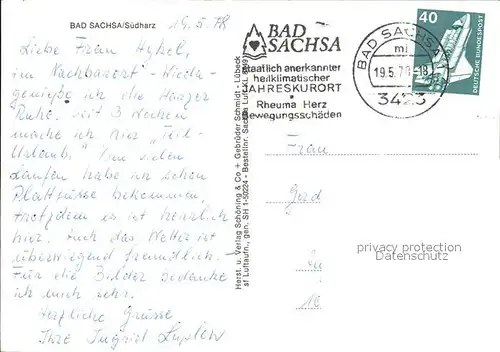 BAD SACHSA/Südharz
19.5.78
Liebe Frau
im Nachbarort - Wieda -
genieße ich die Harzer
Ruhe. Seit 3 Wochen
mache ich hier "Teil-
Urlaub." Vom vielen
Laufen habe ich schon
Plattfüsse bekommen,
trotzdem es ist herrlich
hier. Auch das Wetter ist
überwiegend freundlich. -
Für die Bilder bedanke
ich mich sehr.
Herzliche Grüsse
Ihre Ingrid
Herst. u. Verlag Schöning & Co + Gebrüder Schmidt - Lübeck
st Luftaufn., gen. SH 1-50224 - Bestellnr. Sachsa Luft
BAD
SACHSA
staatlich anerkannter
heilklimatischer
JAHRESKURORT
Rheuma Herz
Bewegungsschäden
BAD SACHSA 1
ml
19.5.78-18
3423
40
DEUTSCHE BUNDESPOST
Frau
Gerd
privacy protection
Datenschutz